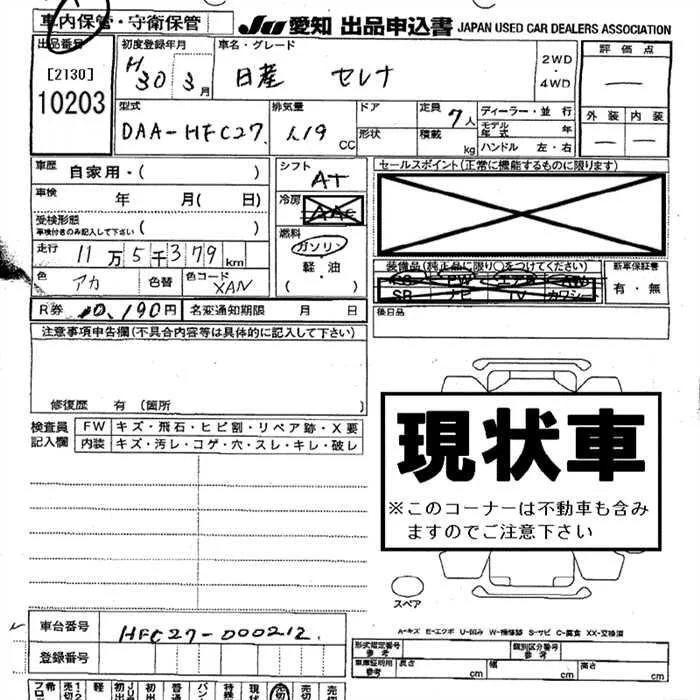 車内保管・守衛保管
JU 愛知 出品申込書 JAPAN USED CAR DEALERS ASSOCIATION
出品番号 初度登録年月 車名・グレード 2WD・4WD 評価点
[2130] H30 3月 日産 セレナ
10203
外装 内装
型式 排気量 ドア 定員 7人 ディーラー・並行
DAA-HFC27. 1.19 CC 形状 積載 kg モデル年式 年
ハンドル 左・右
車歴 自家用・( ) シフト AT セールスポイント(正常に機能するものに限ります)
車検 年 月( 日) 冷房 AAC
受検形態 車検付きのみ記入して下さい ( ) 燃料 ガソリン
走行 11万5千379km 軽・油
( )
装備品(純正品に限り○をつけてください) 新車保証書
PS PW エアB AW
SR ナビ TV カワシート
有・無
色 アカ 色替 色コード XAN
後日品
R券 10,190円 名変通知期限 月 日
注意事項申告欄(不具合内容等は具体的に記入して下さい)
修復歴 有(箇所
検査員記入欄 FW キズ・飛石・ヒビ割・リペア跡・X要
内装 キズ・汚レ・コゲ・穴・スレ・キレ・破レ
現状車
※このコーナーは不動車も含み
ますのでご注意下さい
スペア
A-キズ E-エクボ U-凹み W-補修跡 S-サビ C-腐食 XX-交換済
車台番号 HFC27-000212.
登録番号
形式指定番号 参考 類別区分番号 参考
車庫証明用 参考 長さ cm 幅 cm 高さ cm